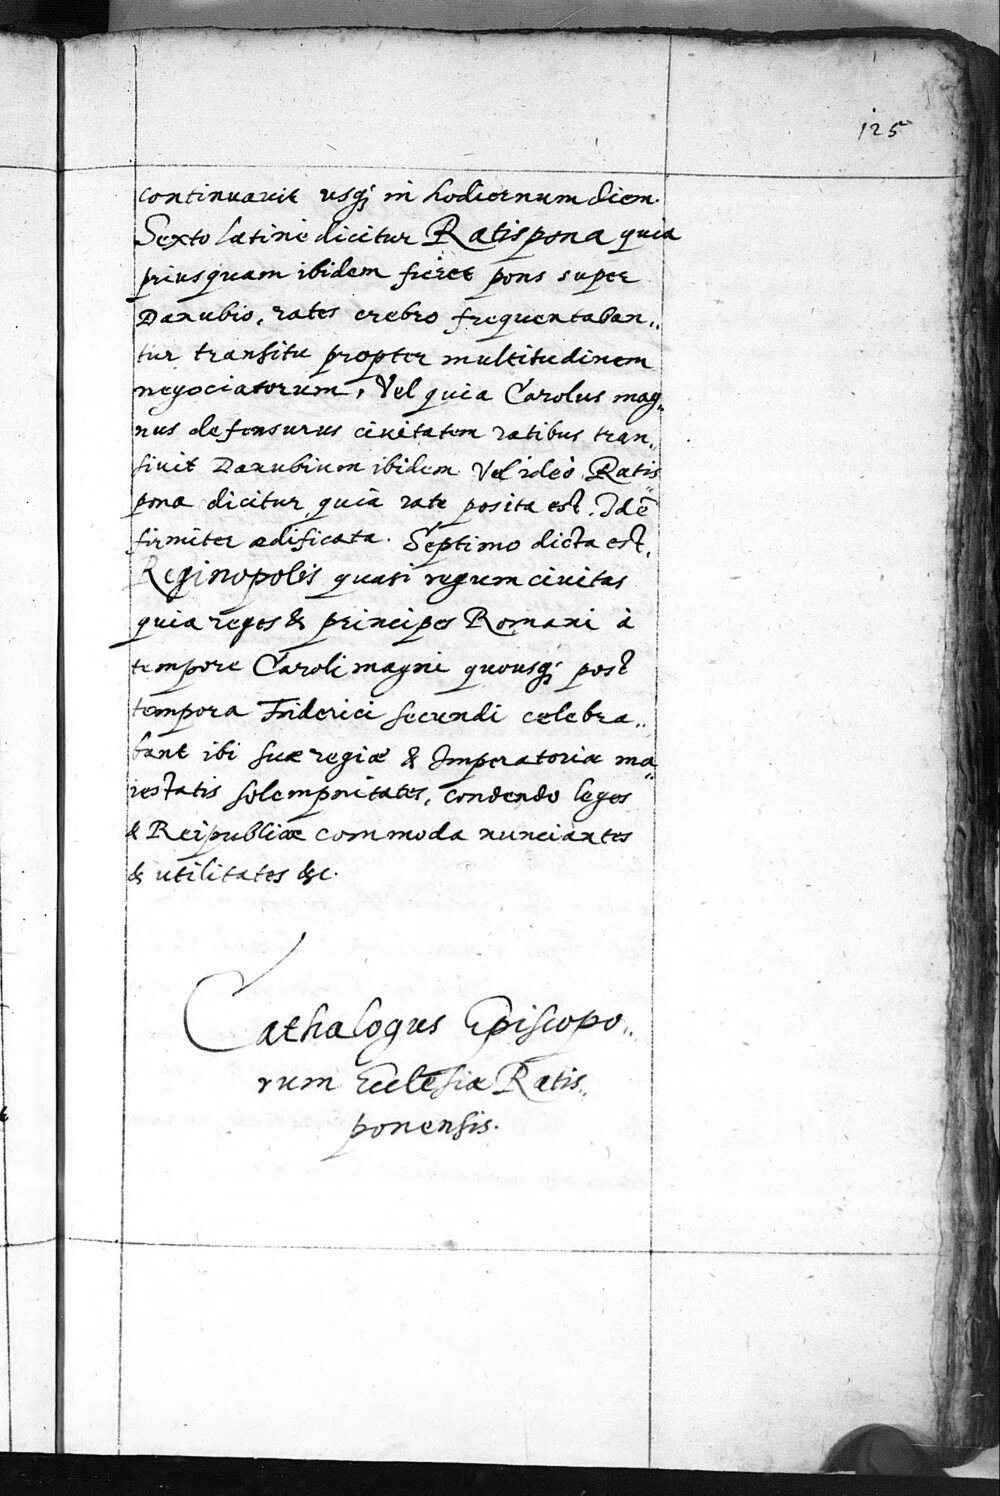 125
continuavit usq; in hodiernum diem.
Sexto latine dicitur Ratispona quia
priusquam ibidem fieret pons super
Danubio, rates crebro frequentaban„
tur transitu propter multitudinem
negociatorum, Vel quia Carolus mag„
nus defensurus civitatem ratibus tran„
sivit Danubium ibidem. Vel ideo Ratis„
pona dicitur, quia rate posita est. Idē
firmiter ædificata. Septimo dicta est,
Reginopolis quasi regum civitas
quia reges & principes Romani à
tempore Caroli magni quousq; post
tempora Friderici secundi celebra„
bant ibi suæ regiæ & Imperatoriæ ma„
iestatis solempnitates, condendo leges
& Reipublicæ commoda nunciantes
& utilitates &c.
Cathalogus Episcopo„
rum Ecclesiæ Ratis„
ponensis.